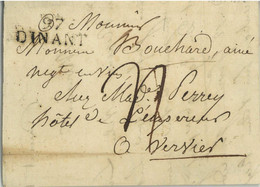 97
DINANT
A Monsieur
Monsieur Bouchard, ainé
negt en vins
chez Made. Perrey
hôtel de L'empereur
a Vervier